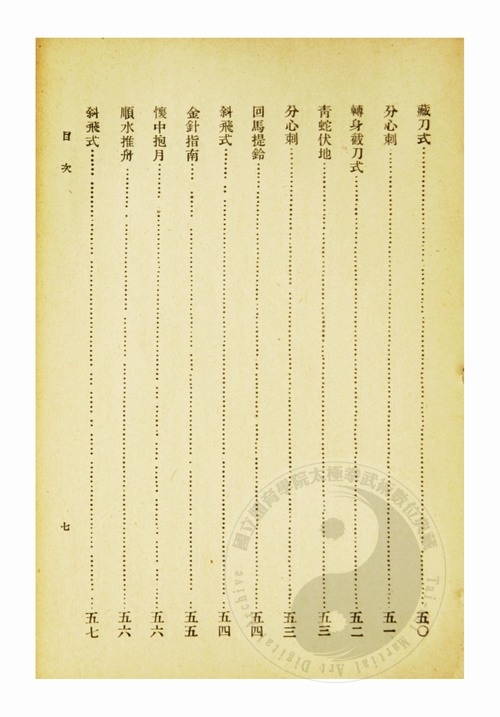 藏刀式……五〇
分心刺……五一
轉身截刀式……五二
青蛇伏地……五三
分心刺……五三
回馬提鈴……五四
斜飛式……五四
金針指南……五五
懷中抱月……五六
順水推舟……五六
斜飛式……五七
目次
七
國立體育學院太極拳武術數位典藏
Taiji Martial Art Digital Archive